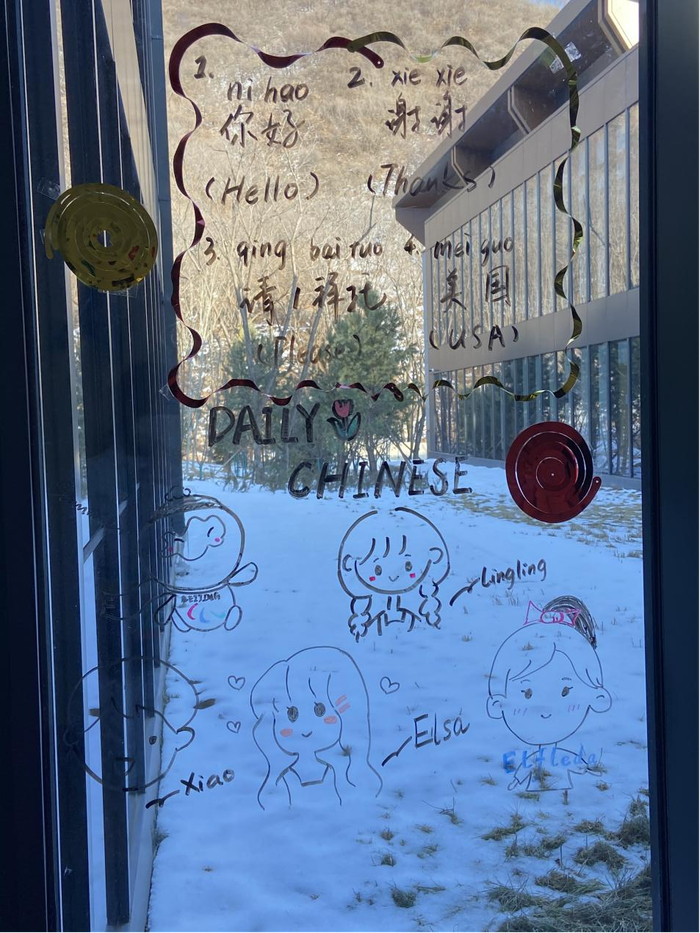 1. ni hao 2. xie xie
你好 谢谢
(Hello) (Thanks)
3. qing bai tuo 4. mei guo
请 / 拜托 美国
(Please) (USA)
DAILY
CHINESE
Lingling
Elsa
Elfleda
Xiao